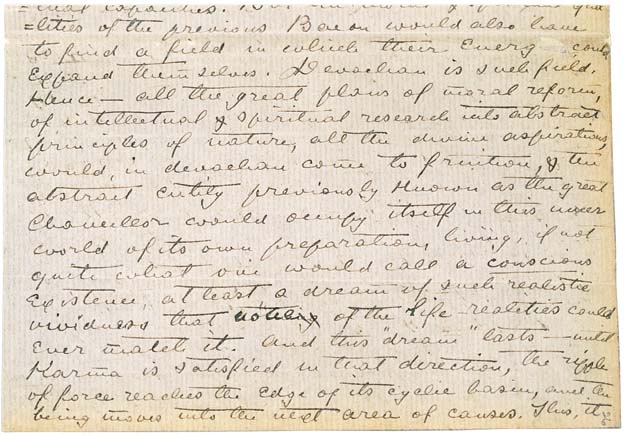 =lities of the previous Bacon would also have
to find a field in which their Energy could
Expand themselves. Devachan is such field.
Hence — all the great plans of moral reform,
of intellectual & spiritual research into abstract
principles of nature, all the divine aspirations,
would, in devachan come to fruition, & the
abstract entity previously known as the great
Chancellor would occupy itself in this inner
world of its own preparation, living, if not
quite what one would call a conscious
Existence, at least a dream of such realistic
vividness that none of the life-realities could
Ever match it. And this "dream" lasts — until
Karma is satisfied in that direction, the ripple
of force reaches the Edge of its cyclic basin, and the
being moves into the next area of causes. This, it